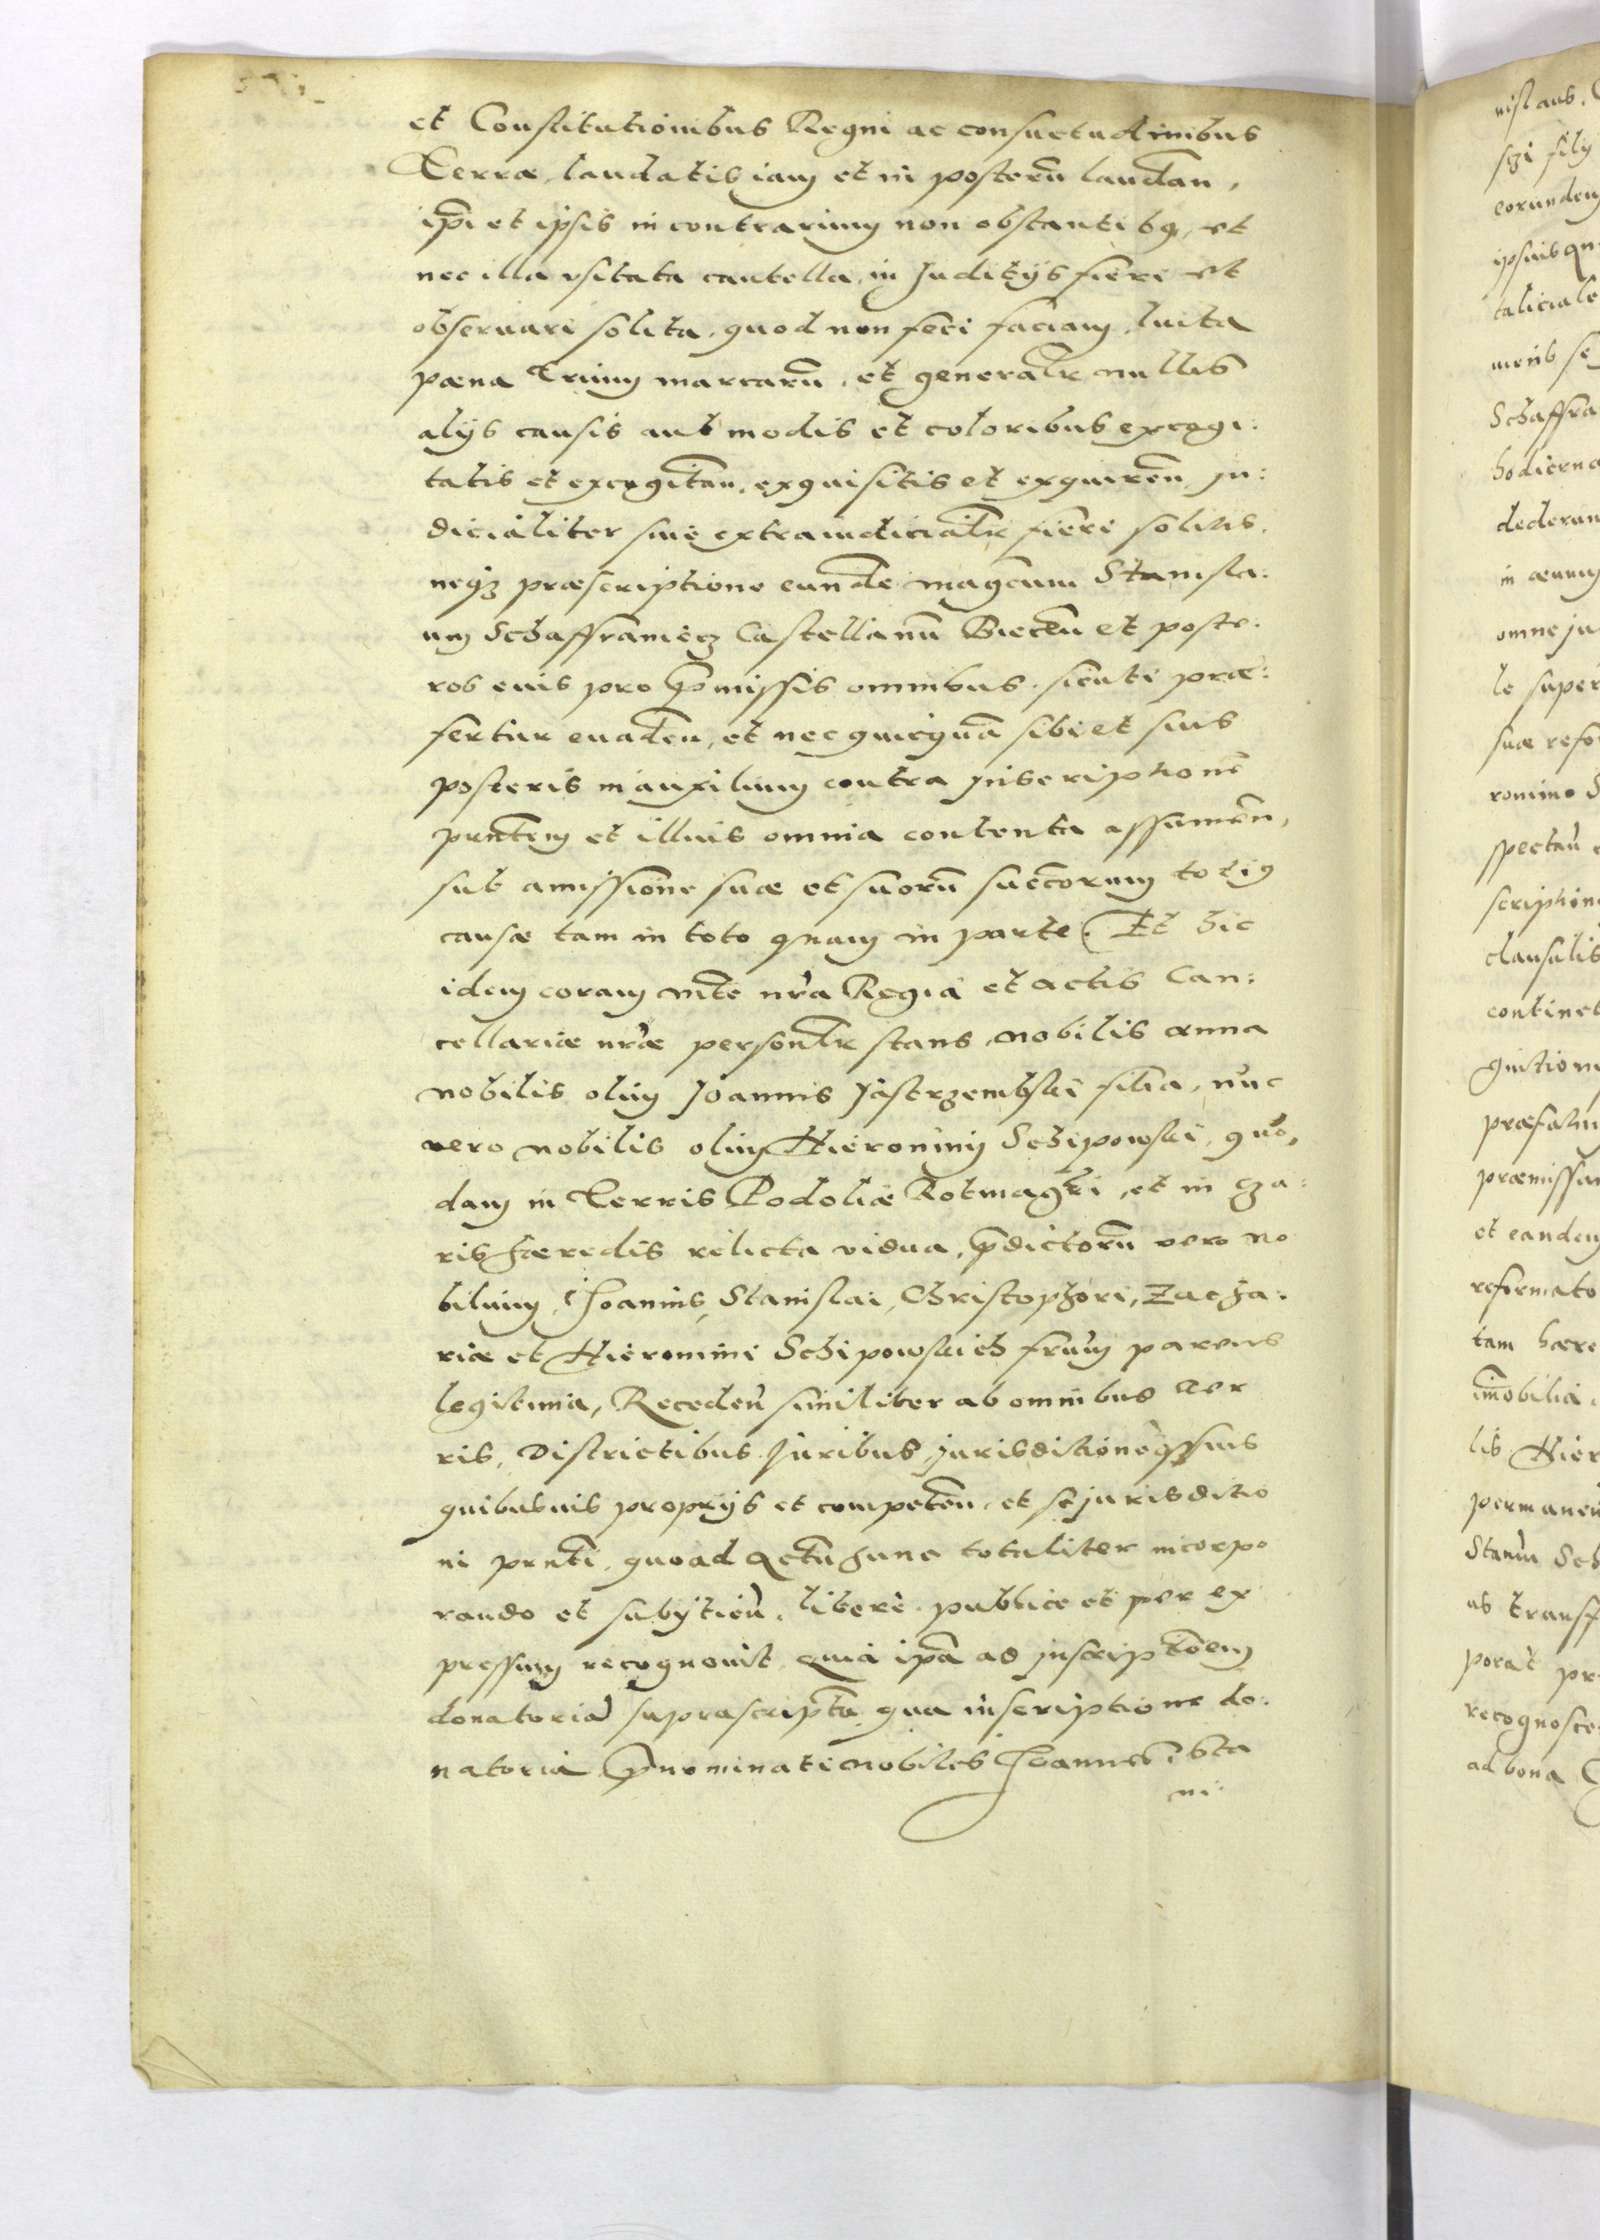 et Constitutionibus Regni ac consuetudinibus
Terræ, laudatis iam et in posterū laudan,
ip̄i et ipsis in contrarium non obstantibq, et
nec illa vsitata cautella, in Juditijs fieri et
obseruari solita, quod non feci faciam, luita
pæna trium marcarū, et generaĺr nullis
alijs causis aut modis et coloribus excogi:
tatis et excogitan, exquisitis et exquiren̄, ju:
dicialiter siue extraiudiciaĺr fieri solitis,
neqȝ præscriptione eunde magcum Stanisla:
um Schaffraniecz Castellanū Biecen̄ et poste:
ros euis pro p̄missis omnibus, sicuti præ:
fertur euaden̄, et nec quicquā sibi et suis
posteris in auxilium contra inscriptione
pn̄tem et illius omnia contenta assumen̄,
sub amissione suæ et suorū succorum totiq
causæ tam in toto quam in parte. Et hic
idem coram mte nra Regia et actis Can:
cellariæ nræ persoǹlr stans, nobilis Anna
nobilis olim Joannis Jastrzembski filia, nūc
vero nobilis olim Hieronimi Schipowski, quo,
dam in Terris Podoliæ Rotmagistri, et in Cza:
ris hæredis relicta vidua, p̄dictorū vero no
bilium, Joannis, Stanislai, Christophori, Zacha:
riæ et Hieronimi Schipowskich frūm parens
legitima, Receden̄ similiter ab omnibus ter
ris, Districtibus Juribus jurisditioneqȝ suis
quibusuis proprijs et competen̄, et se jurisditio
ni pn̄ti, quoad Actū hunc totaliter incorpo
rando et subijcien̄, libere publice et per ex
pressum recognouit, Quia ip̄a ad inscriptōem
donatoriā suprascriptā, qua inscriptione do:
natoria p̄nominati nobiles Joannes, Sta
ni:

nislaus,
szi filij
eorundem
ipsius qu
taliciale
mens se
Schaffra
hodierna
dederun
in æuum
omne ju
le super
suæ refo
ronimo S
spectan̄
scription
clausulis
continet
præfatu
præmissa
et eandem
reformato
tam hære
im̄obilia
lis Hier
permanen
Stanm Sch
us transf
porat pr
recognosce
ad bona